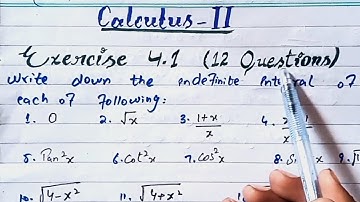 Calculus-II
Exercise 4.1 (12 Questions)
write down the indefinite integral of
each of following:
1. 0 2. √x 3. (1+x)/x 4.
5. Tan²x 6. Cot²x 7. Cos²x 8. 9.
10. √(4-x²) 11. √(4+x²)